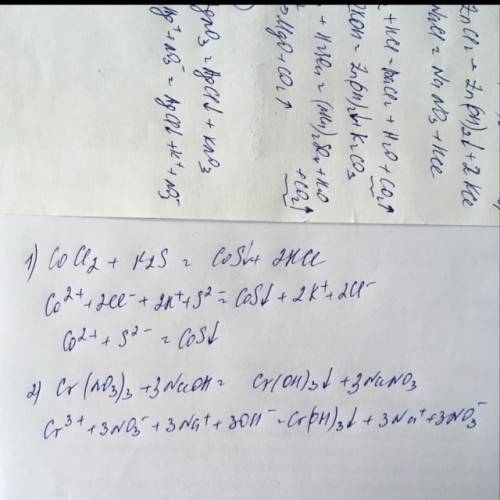 ZnCl₂ → Zn(OH)₂↓ + 2KCl
NaCl = NaNO₃ + HCl
+ HCl = BaCl₂ + H₂O + CO₂↑
KOH = Zn(OH)₂↓ + K₂CO₃
+ H₂O
+ CO₂↑
MgO + CO₂↑
= AgCl↓ + KNO₃
= AgCl↓ + K⁺ + NO₃⁻
1) CoCl₂ + K₂S = CoS↓ + 2KCl
Co²⁺ + 2Cl⁻ + 2K⁺ + S²⁻ = CoS↓ + 2K⁺ + 2Cl⁻
Co²⁺ + S²⁻ = CoS↓
2) Cr(NO₃)₃ + 3NaOH = Cr(OH)₃↓ + 3NaNO₃
Cr³⁺ + 3NO₃⁻ + 3Na⁺ + 3OH⁻ = Cr(OH)₃↓ + 3Na⁺ + 3NO₃⁻